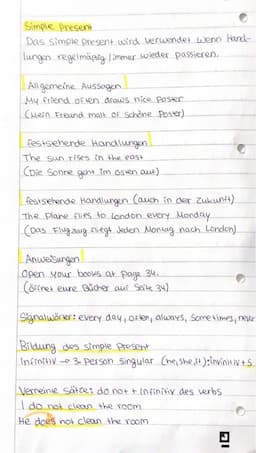 Simple Present
Das simple present wird verwendet wenn Hand-
lungen regelmäßig / immer wieder passieren.
Allgemeine Aussagen
My friend often draws nice Poster
(Mein Freund malt oft schöne Poster)
festsehende Handlungen
The sun rises in the east
(Die Sonne geht im osten auf)
festsehende Handlungen (auch in der Zukunft)
The Plane flies to London every Monday
(Das Flugzeug fliegt jeden Montag nach London)
Anweisungen
Open your books at page 34.
(Öffnet eure Bücher auf Seite 34)
Signalwörter: every day, often, always, sometimes, never
Bildung des simple Present
Infinitiv → 3. Person singular (he, she, it): invinitiv + s
Verneinte Sätze: do not + Infinitiv des verbs
I do not clean the room
He does not clean the room